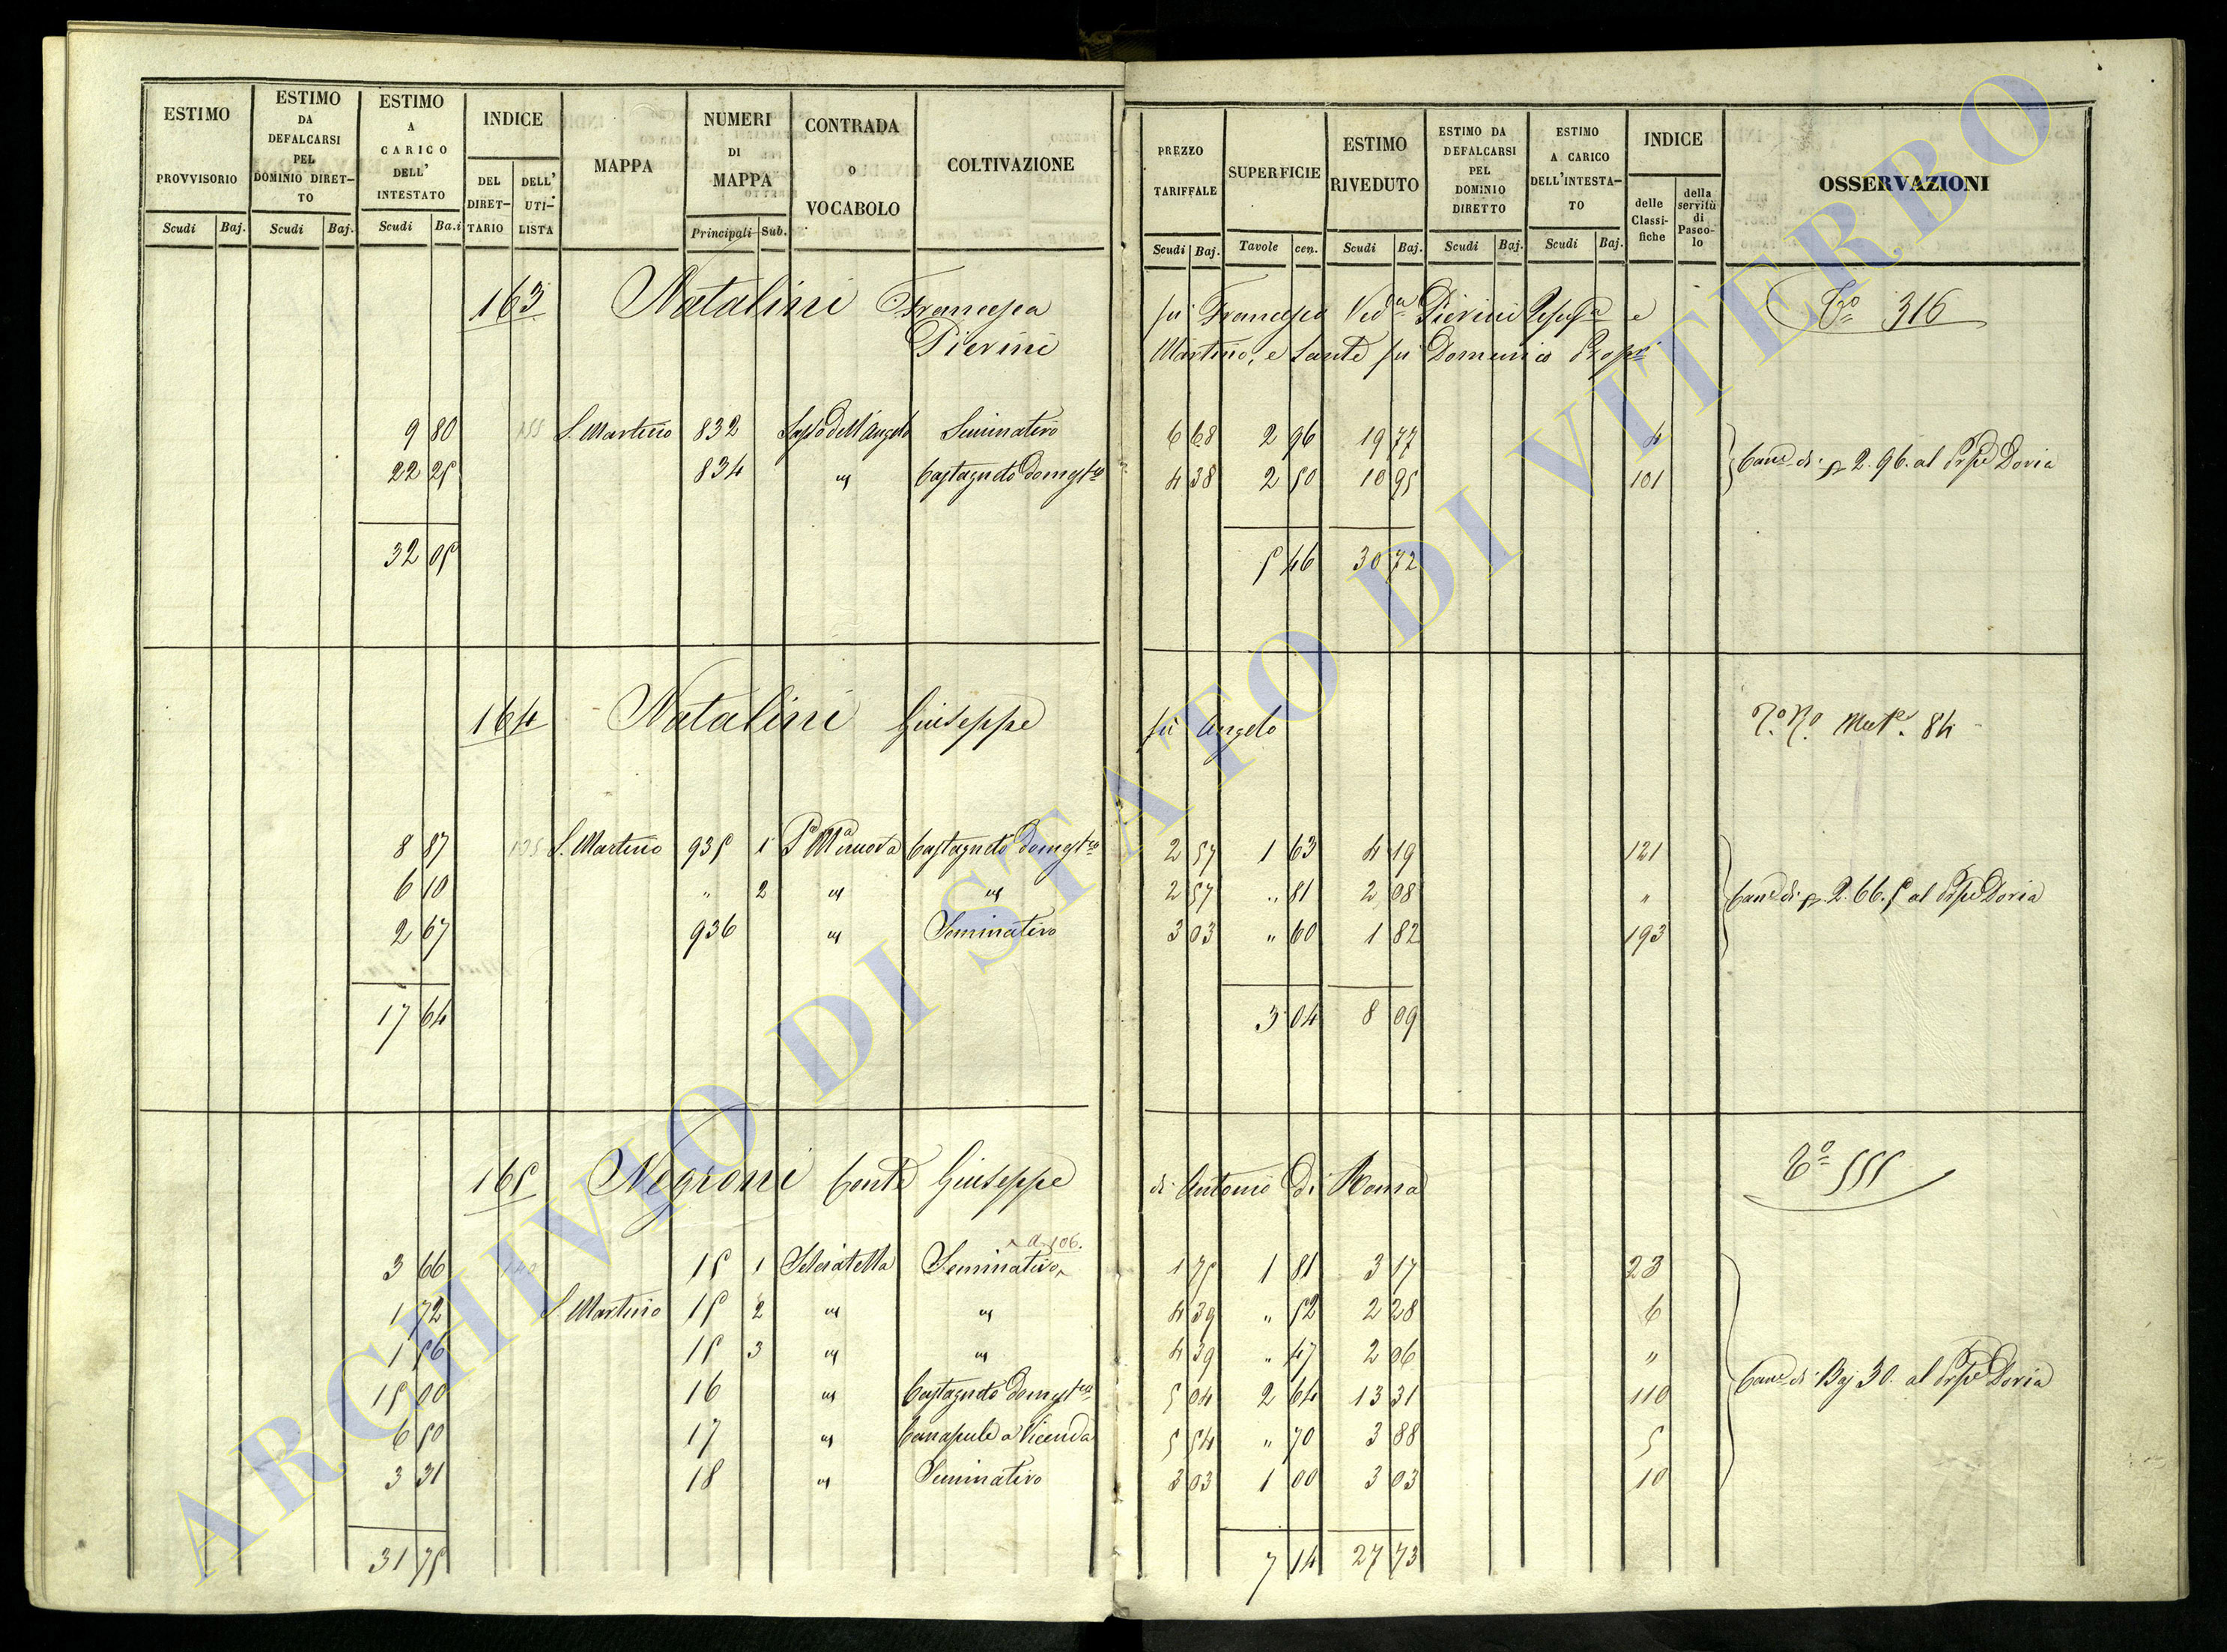 ESTIMO PROVVISORIO
ESTIMO DA DEFALCARSI PEL DOMINIO DIRET-TO
ESTIMO A CARICO DELL' INTESTATO
INDICE
DEL DIRET-TARIO
DELL' UTI-LISTA
MAPPA
NUMERI DI MAPPA
CONTRADA O VOCABOLO
COLTIVAZIONE
PREZZO TARIFFALE
SUPERFICIE
ESTIMO RIVEDUTO
ESTIMO DA DEFALCARSI PEL DOMINIO DIRETTO
ESTIMO A CARICO DELL'INTESTA-TO
INDICE
delle Classi-fiche
della servitù di Pasco-lo
OSSERVAZIONI
Scudi Baj. Scudi Baj. Scudi Ba.i Principali Sub.
Scudi Baj. Tavole cen. Scudi Baj. Scudi Baj. Scudi Baj.
163 Natalini Francesca fu Francesco Ved.a Pierini Usufr.a e 316
Pierini Martino, e Sante fu Domenico Propri
9 80 S. Martino 832 Sasso dell'Angelo Seminativo 6 68 2 96 19 77 4
22 25 834 " Castagneto Domest.co 4 38 2 50 10 95 101
Can.e di 2.96. al Prpe Doria
32 05 5 46 30 72
164 Natalini Giuseppe fu Angelo 84
8 87 S. Martino 935 1 Castagneto Domest.co 2 57 1 63 4 19 121
6 10 " 2 " " 2 57 " 81 2 08 "
Can.e di 2.66.5 al Prpe Doria
2 67 936 " Seminativo 3 03 " 60 1 82 193
17 64 3 04 8 09
165 Negroni Conte Giuseppe di Antonio di Roma 555
a 106.
3 66 15 1 Selciatella Seminativo 1 75 1 81 3 17 23
1 72 S. Martino 15 2 " " 4 39 " 52 2 28 6
1 56 15 3 " " 4 39 " 47 2 06 "
Can.e di Baj 30. al Prpe Doria
15 00 16 " Castagneto Domest.co 5 04 2 64 13 31 110
6 50 17 " Canapule a Vicenda 5 54 " 70 3 88 5
3 31 18 " Seminativo 3 03 1 00 3 03 10
31 75 7 14 27 73
ARCHIVIO DI STATO DI VITERBO